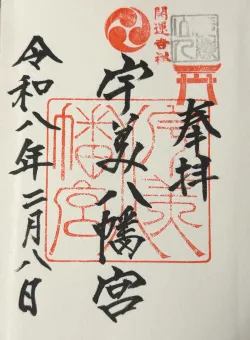 開運吉社
奉拝
宇美八幡宮
宇美八幡宮
令和八年二月八日